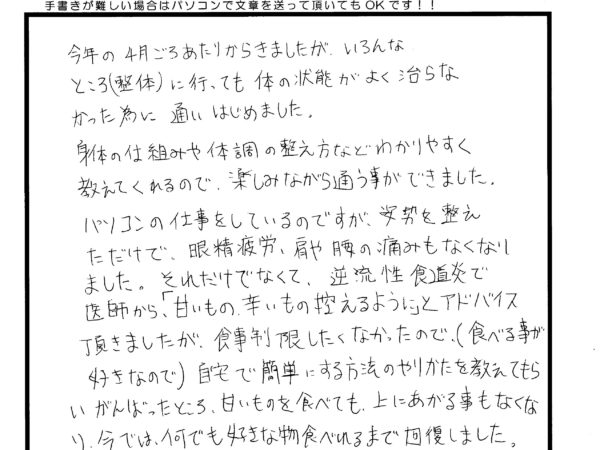 手書きが難しい場合はパソコンで文章を送って頂いてもOKです！！
今年の4月ごろあたりからきましたが、いろんな
ところ(整体)に行っても体の状態がよく治らな
かった為に通いはじめました。
身体の仕組みや体調の整え方などわかりやすく
教えてくれるので、楽しみながら通う事ができました。
パソコンの仕事をしているのですが、姿勢を整え
ただけで、眼精疲労、肩や腰の痛みもなくなり
ました。それだけでなくて、逆流性食道炎で
医師から、「甘いもの、辛いもの控えるように」とアドバイス
頂きましたが、食事制限したくなかったので、(食べる事が
好きなので)自宅で簡単にする方法のやりかたを教えてもら
いがんばったところ、甘いものを食べても、上にあがる事もなくな
り、今では、何でも好きな物食べれるまで回復しました。